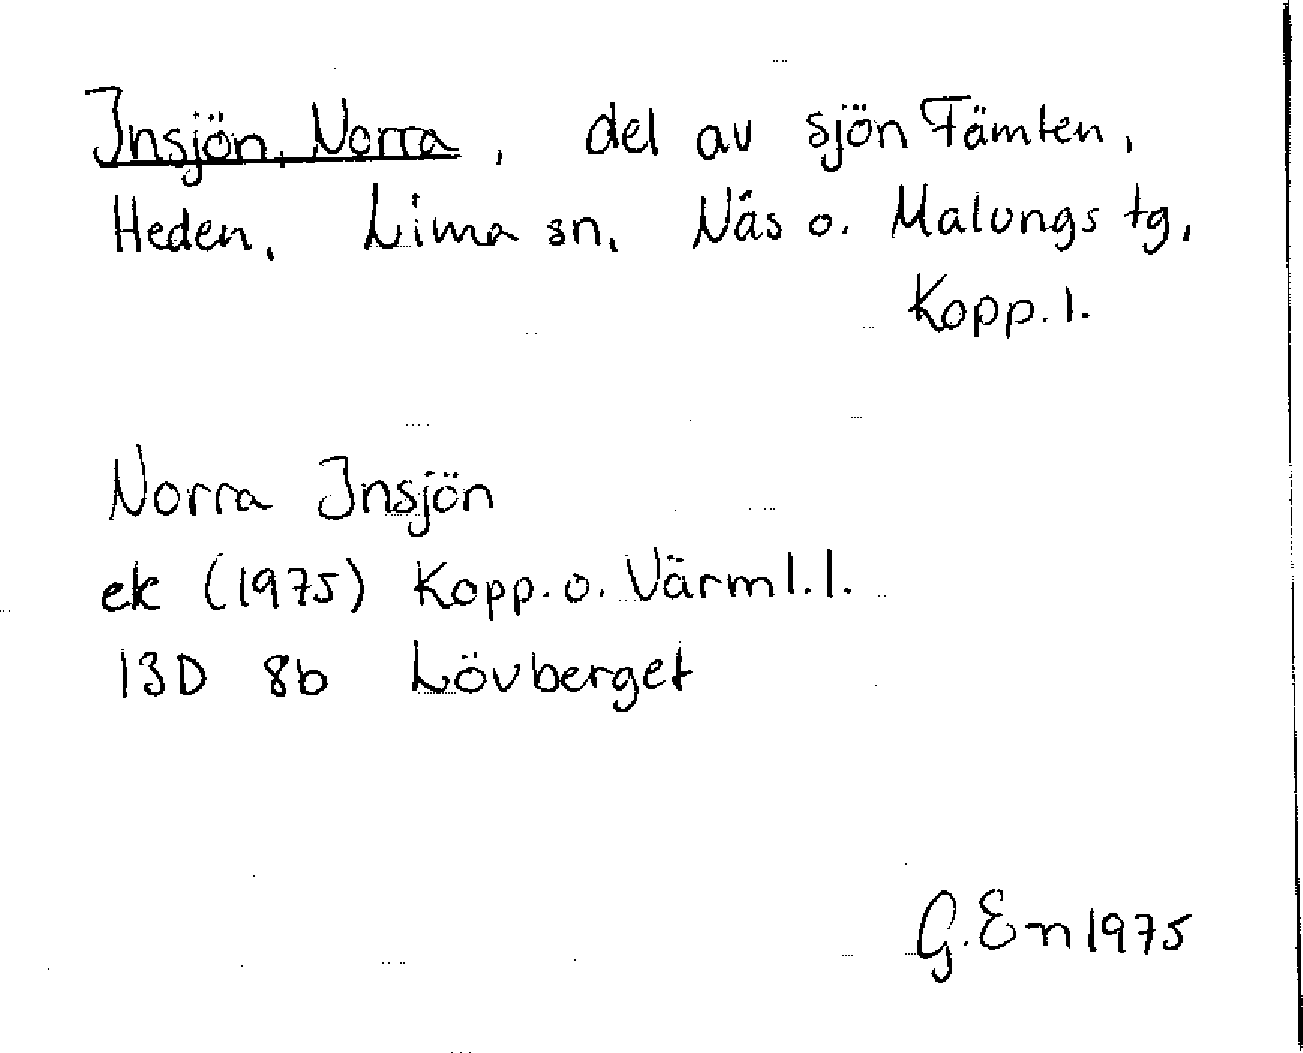 Insjön, Norra, del av sjön Fämten,
Heden, Lima sn, Näs o. Malungs tg,
Kopp. l.
Norra Insjön
ek (1975) Kopp. o. Värml. l.
13D 8b Lövberget
G. En 1975